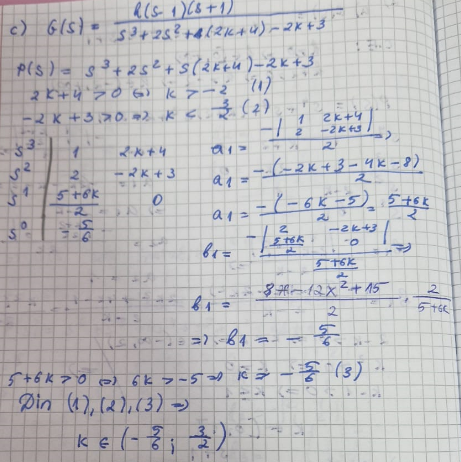 c) G(s) = k(s-1)(s+1) / s³+2s²+s(2k+4)-2k+3
P(s) = s³+2s²+s(2k+4)-2k+3
2k+4>0 ⇔ k>-2 (1)
-2k+3>0 ⇒ k< 3/2 (2)
s³ | 1 2k+4
s² | 2 -2k+3
s¹ | 5+6k/2 0
s⁰ | -5/6
a₁= -|1 2k+4; 2 -2k+3| / 2 ⇒
a₁= -(-2k+3-4k-8) / 2
a₁= -(-6k-5) / 2 = 5+6k / 2
b₁= -|2 -2k+3; 5+6k/2 0| / 5+6k/2 ⇒
b₁= -12x²+15 / 2 · 2 / 5+6k
⇒ b₁= -5/6
5+6k>0 ⇒ 6k>-5 ⇒ k> -5/6 (3)
Din (1), (2), (3) ⇒
k ∈ (-5/6 ; 3/2)